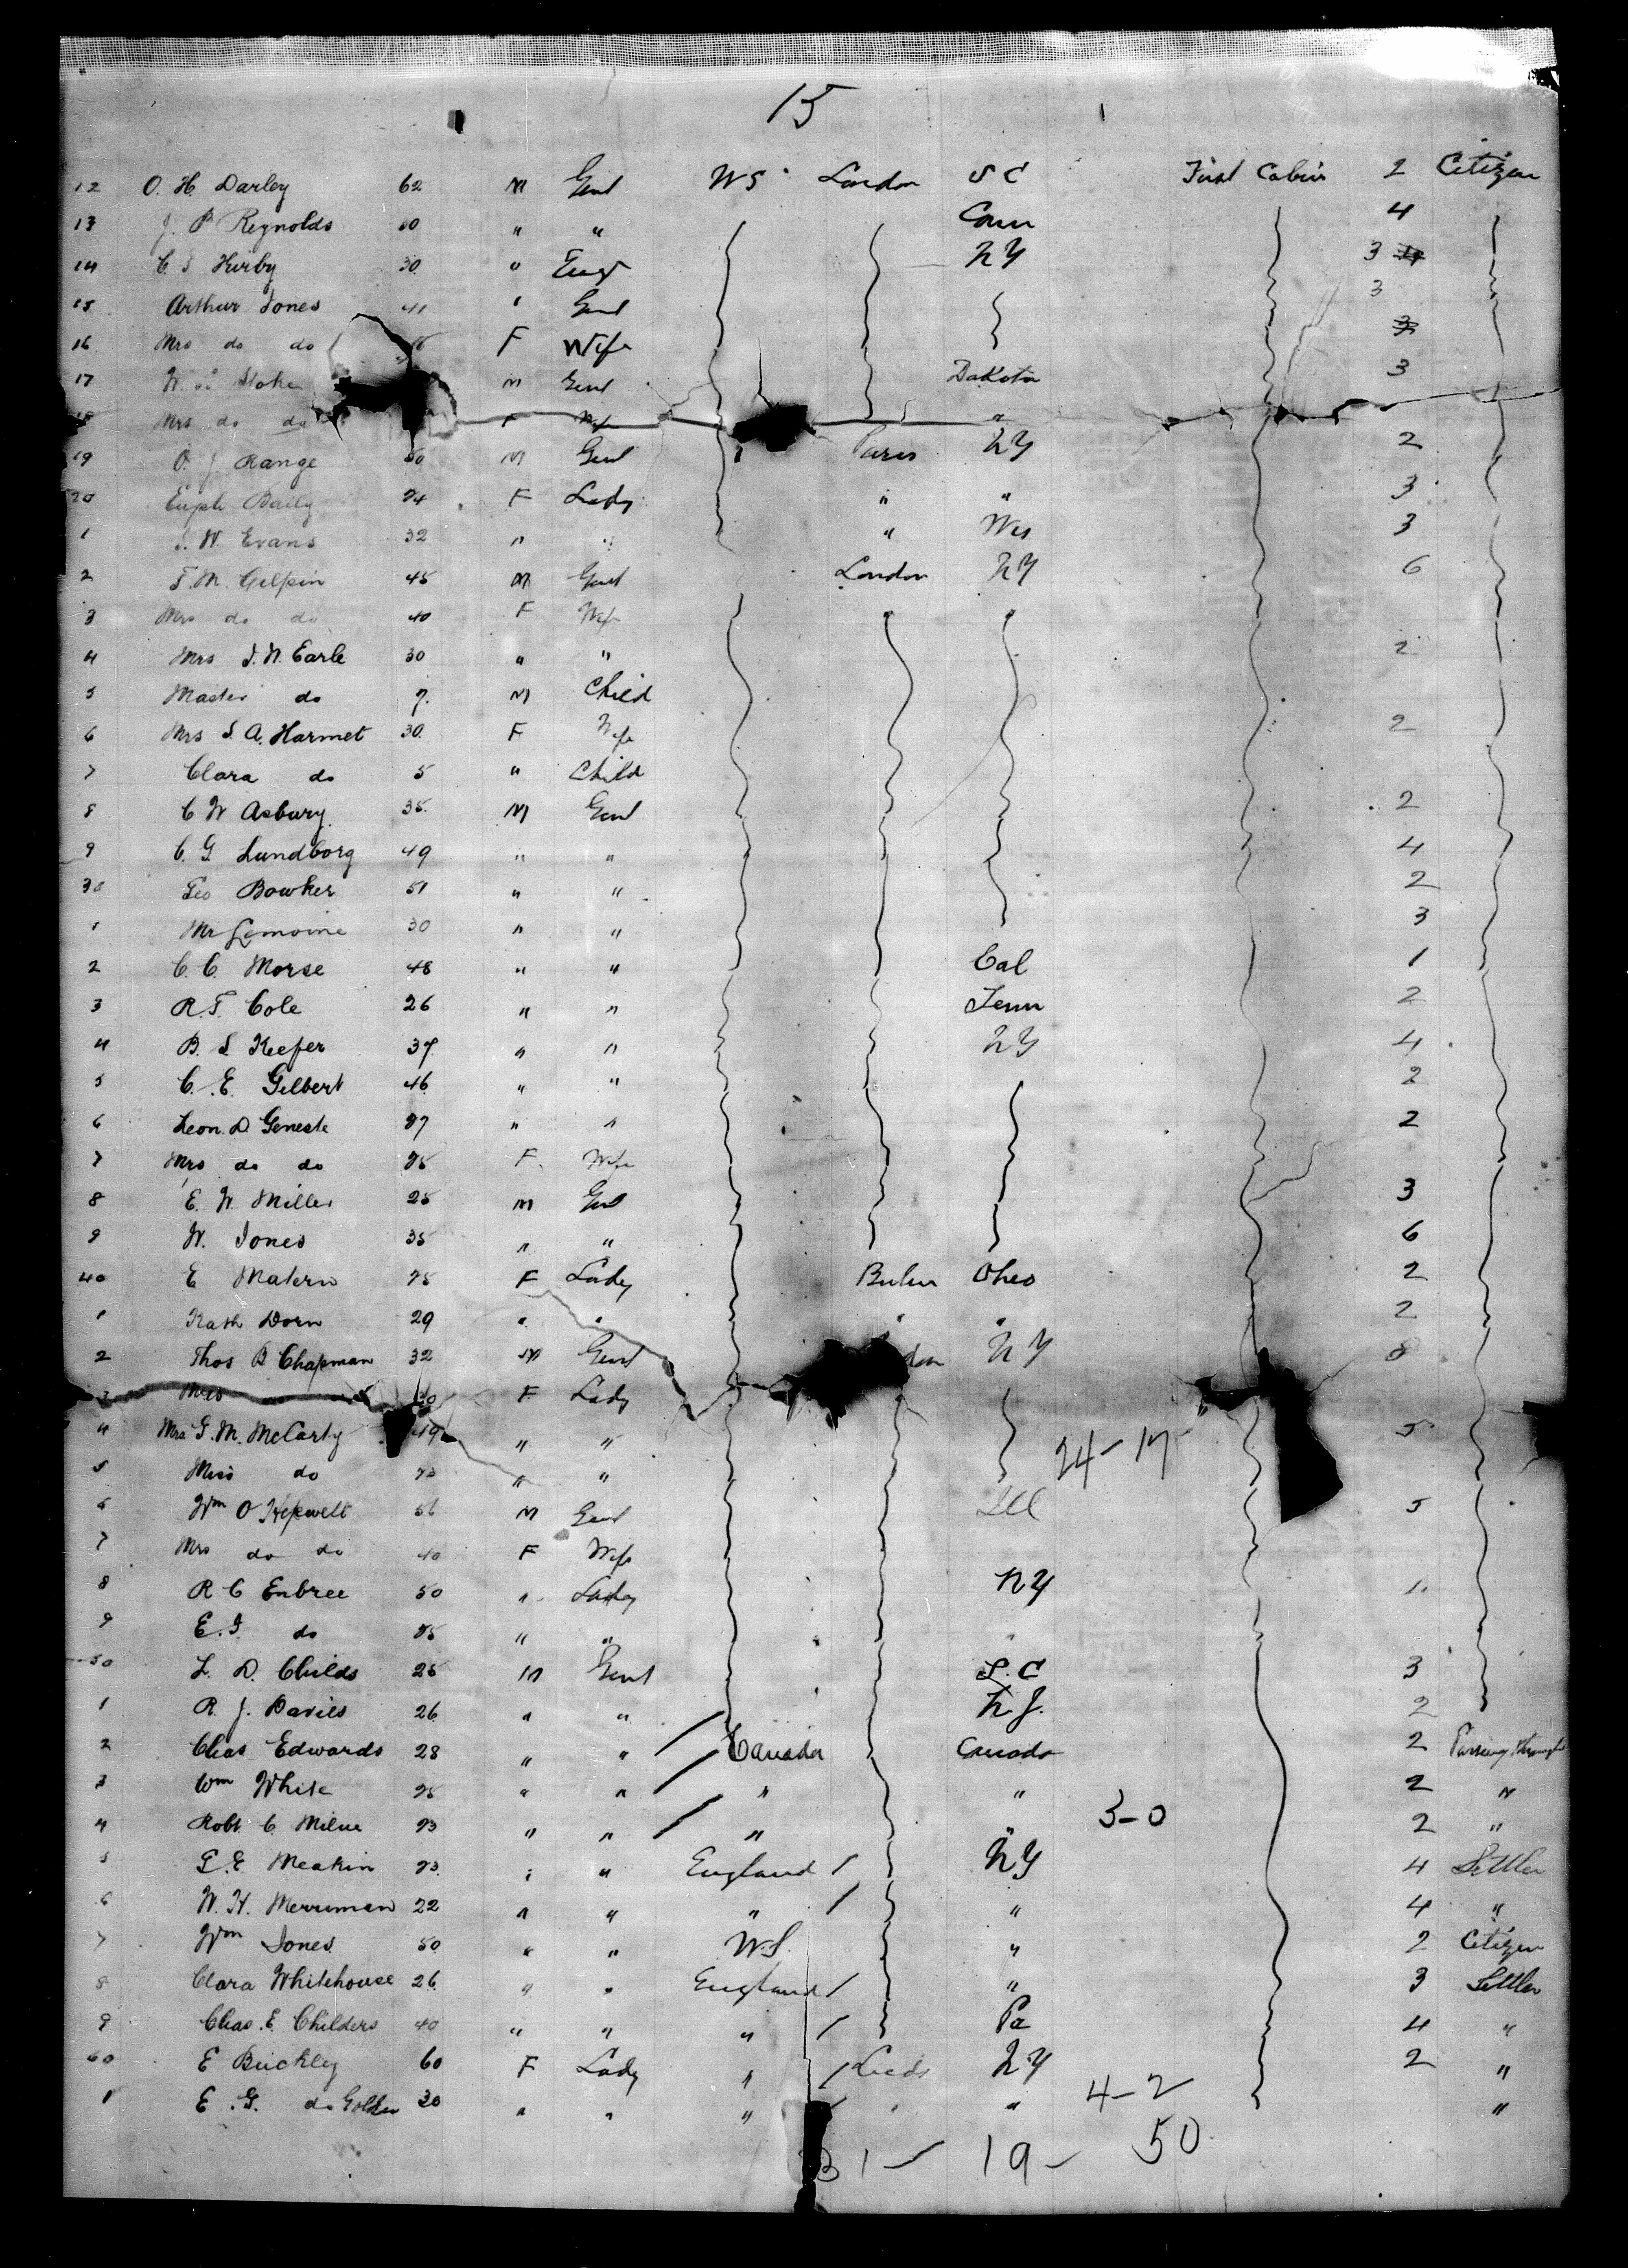 15
12 O. H. Darley 62 M Gent US London S C First Cabin 2 Citizen
13 J. P Reynolds " " Conn 4
14 C. S Kirby 30 " NY 3
15 Arthur Jones 41 " Gent 3
16 Mrs do do F Wife 3
17 W. Stoke M Gent Dakota 3
18 Mrs do do F Wife "
19 O. J Range 50 M Gent Paris NY 2
20 Euph Baily 24 F Lady " " 3
1 S. W. Evans 32 " " " Wis 3
2 F. M. Gilpin 45 M Gent London NY 6
3 Mrs do do 40 F Wife " "
4 Mrs J. W. Earle 30 " " 2
5 Master do 7 M Child
6 Mrs S. A. Harmet 30 F Wife 2
7 Clara do 5 " Child
8 C W Asbury 35 M Gent 2
9 C. G Lundborg 49 " " 4
30 Geo Bowker 51 " " 2
1 Mr Lemoine 30 " " 3
2 C. C. Morse 48 " " Cal 1
3 R. F. Cole 26 " " Tenn 2
4 B. S Keefer 37 " " NY 4
5 C. E. Gilbert 46 " " 2
6 Leon. D. Geneste 27 " " 2
7 Mrs do do 25 F. Wife
8 E. W. Miller 25 M Gent 3
9 W. Jones 35 " " 6
40 E Matern 25 F Lady Ohio 2
1 Kath Dorn 29 " " " " 2
2 Thos B Chapman 32 M Gent don NY 8
3 Miss F Lady
4 Mrs G. M. McCarty 49 " " 24-17 5
5 Miss do " "
6 Wm O M Gent Ill 5
7 Mrs do do 40 F Wife
8 R C Enbree 50 " Lady NY 1
9 E. J. do 25 " " "
50 L. D. Childs 25 M Gent S. C 3
1 R. J. Davies 26 " " N. J. 2
2 Chas Edwards 28 " " Canada Canada 2 Passing through
3 Wm White 25 " " " " 2 "
4 Robt C. Milne 23 " " " " 3-0 2 "
5 E. Meakin 23 " " England NY 4 Settler
6 W. H. Merriman 22 " " " " 4 "
7 Wm Jones 50 " " U.S. " 2 Citizen
8 Clara Whitehouse 26 " " England " 3 Settler
9 Chas. E. Childers 40 " " " Pa 4 "
60 E Buckley 60 F Lady " Leeds NY 2 "
1 E. G. do 30 " " " " " 4-2 "
31- 19- 50